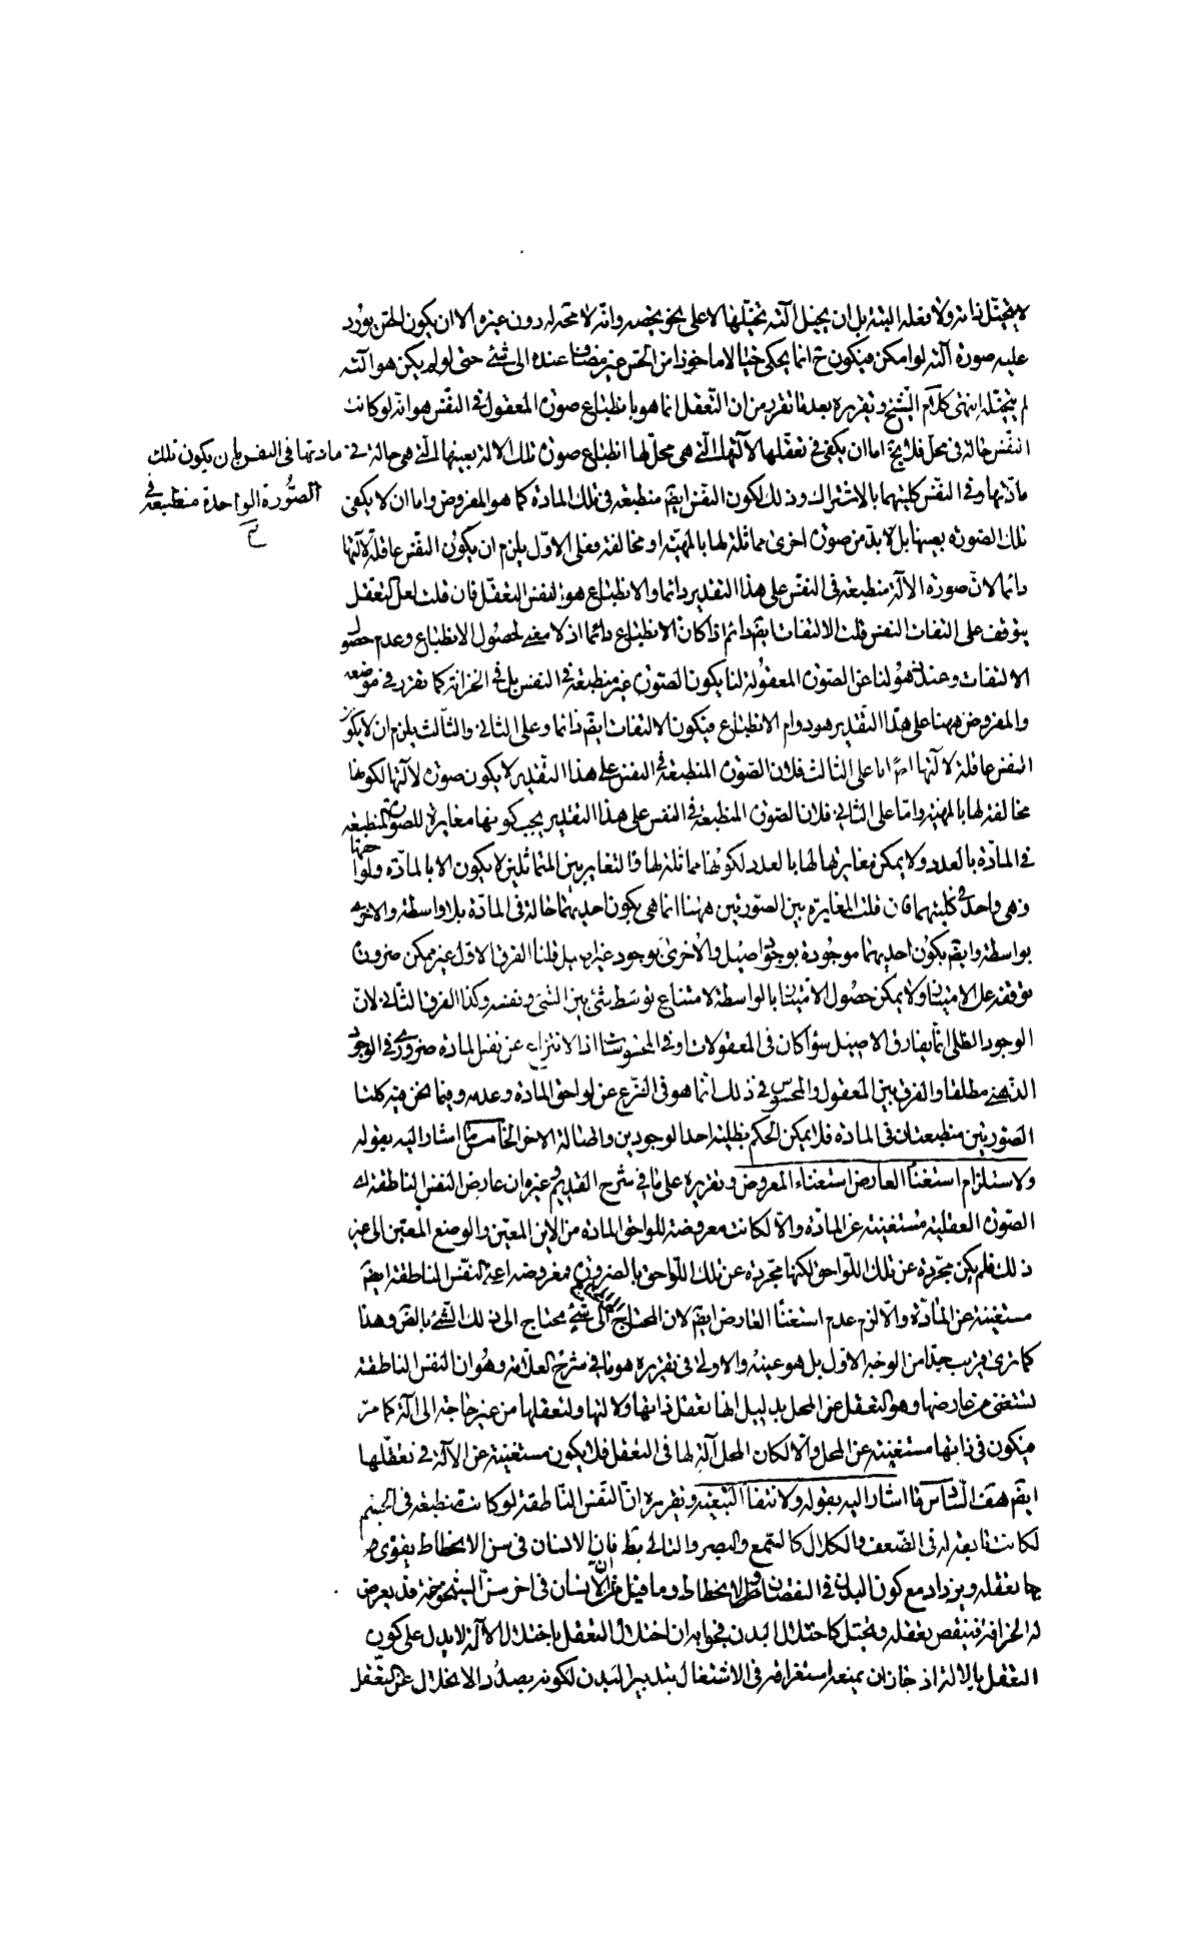 لا يتخيّل ذاته ولا فعله البتة بل ان يخيل آلته تخيّلها لا على نحو يخصه وانه لا محة له دون غيره الا ان يكون الحس يورد
عليه صورة آلته لو امكن فيكون ح انما يحكى خيالا ماخوذا من الحس غير مضاف عنده الى شئ حتى لو لم يكن هو آلته
لم يتخيله انتهى كلام الشيخ وتقريره بعد ما تقرر من ان التعقل انما هو بانطباع صورة المعقول فى النفس هو انه لو كانت
النفس حالة فى محل فلا يخ اما ان يكفى فى تعقلها لآلتها الّتى هى محلّ لها انطباع صورة تلك الالة بعينها الّتى هى حالة فى مادتها فى النفس بان يكون تلك
الصّورة الواحدة منطبعة فى
مادّتها وفى النفس كليتهما بالاشتراك وذلك لكون النفس ايضم منطبعة فى تلك المادة كما هو المفروض واما ان لا يكفى
تلك الصورة بعينها بل لا بد من صورة اخرى مماثلة لها بالمهية او مخالفة فعلى الاوّل يلزم ان يكون النفس عاقلة لآلتها
دائما لانّ صورة الالة منطبعة فى النفس على هذا التقدير دائما والانطباع هو نفس التعقّل فان قلت لعل التعقل
يتوقف على التفات النفس قلت الالتفات ايضم دائم اذا كان الانطباع دائما اذ لا معنى لحصول الانطباع وعدم حصو
الالتفات وعند ذهولنا عن الصورة المعقولة لنا يكون الصورة غير منطبعة فى النفس بل فى الخزانة كما تقرر فى موضعه
والمفروض ههنا على هذا التقدير هو دوام الانطباع فيكون الالتفات ايضم دائما وعلى الثانى والثالث يلزم ان لا يكون
النفس عاقلة لآلتها اصلا اما على الثالث فلان الصورة المنطبعة فى النفس على هذا التقدير لا يكون صورة لآلتها لكونها
مخالفة لها بالمهية وامّا على الثانى فلان الصورة المنطبعة فى النفس على هذا التقدير يجب كونها مغايرة للصورة المنطبعة
فى المادّة بالعدد ولا يمكن مغايرتها لها بالعدد لكونها مماثلة لها والتغاير بين المتماثلين لا يكون الا بالمادّة ولواحقها
وهى واحدة فى كليتهما فان قلت المغايرة بين الصّورتين ههنا انما هى بكون احديهما حالة فى المادّة بلا واسطة والاخرى
بواسطة وايضم بكون احديهما موجودة بوجود اصيل والاخرى بوجود غير اصيل قلنا الفرق الاول غير ممكن ضرورة
توقفه على الامتياز ولا يمكن حصول الامتياز بالواسطة لامتناع توسّط شئ بين الشئ ونفسه وكذا الفرق الثانى لانّ
الوجود الظلى انما يفارق الاصيل سواء كان فى المعقولات او فى المحسوسات اذ الانتزاع عن نفس المادة ضرورى فى الوجود
الذهنى مطلقا والفرق بين المعقول والمحسوس فى ذلك انّما هو فى النزع عن لواحق المادة وعدمه وفيما نحن فيه كلتا
الصورتين منطبعتان فى المادة فلا يمكن الحكم بظلية احد الوجودين واصالة الاخر الخامس ما اشار اليه بقوله
ولاستلزام استغناء العارض استغناء المعروض وتقريره على ما فى شرح القديم وغيره ان عارض النفس الناطقة اى
الصورة العقلية مستغنية عن المادّة والّا لكانت معروضة للواحق المادة من الاين المعين والوضع المعين الى غير
ذلك فلم يكن مجرّدة عن تلك اللّواحق لكنها مجرّدة عن تلك اللّواحق بالضرورة فمعروضه اعنى النفس الناطقة ايضم
مستغنية عن المادّة والّا لزم عدم استغناء العارض ايضم لان المحتاج الى شئ محتاج الى ذلك الشئ بالضرورة وهذا
كما ترى قريب جدا من الوجه الاول بل هو عينه والاولى فى تقريره هو ما فى شرح العلامة وهو ان النفس الناطقة
تستغنى من عارضها وهو التعقل عن المحل بدليل انها تعقل ذاتها ولآلتها ولتعقلها من غير حاجة الى آلة كما مرّ
فيكون فى ذاتها مستغنية عن المحل والّا لكان المحل آلة لها فى التعقل فلا يكون مستغنية عن الآلة فى تعقّلها
ايضم هف السّادس ما اشار اليه بقوله ولانتفاء التبعية وتقريره انّ النفس النّاطقة لو كانت منطبعة فى الجسم
لكانت تابعة له فى الضّعف والكلال كالسّمع والبصر والتالى بط فان الانسان فى سن الانحطاط يقوى
تعقله ويزداد مع كون البدن فى النقصان والانحطاط وما قيل من ان الانسان فى اخر سنّ الشيخوخة قد يعرض
له الخرافة فينقص تعقله ويختل كاختلال البدن فجوابه ان اختلال التعقل باختلال الآلة لا يدل على كون
التعقل بالآلة اذ جاز ان يمنعه استغراقه فى الاشتغال بتدبير البدن لكونه بصدد الانحلال عن التعقّل